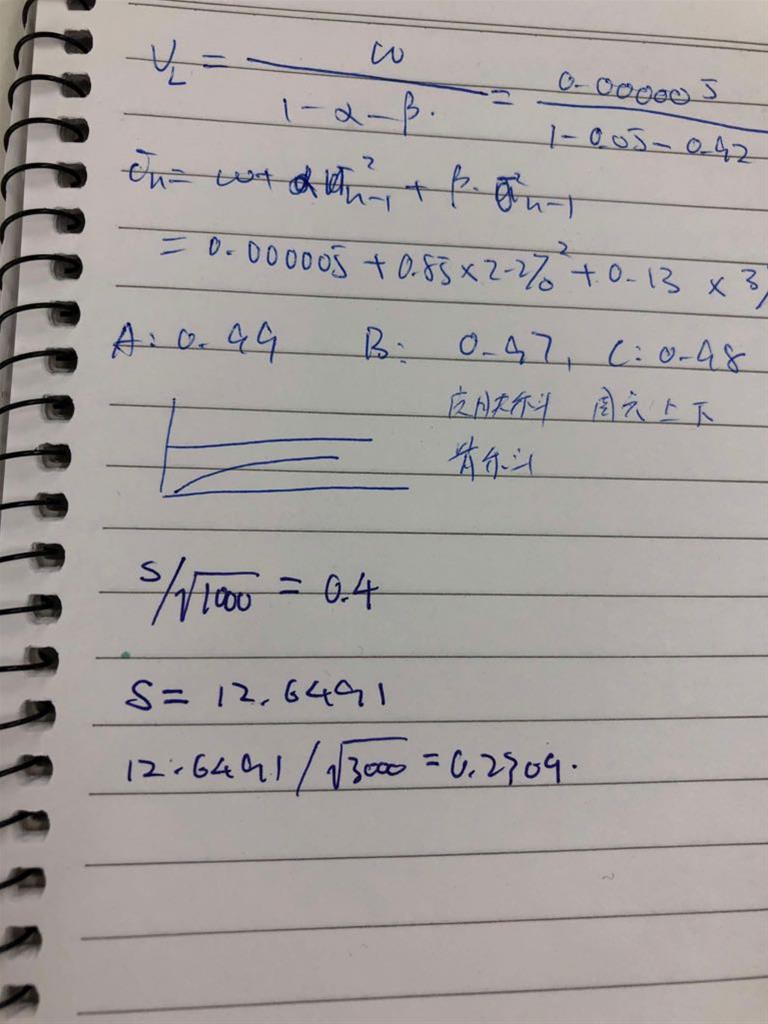 V_L = ω / (1 - α - β.) = 0.000005 / (1 - 0.05 - 0.92
σ_n = ω + α u²_{n-1} + β. σ²_{n-1}
= 0.000005 + 0.85 × 2.2%² + 0.13 × 3%
A: 0.99 B: 0.97, C: 0.98
周六上下
S/√1000 = 0.4
S = 12.6491
12.6491 / √3000 = 0.2309.